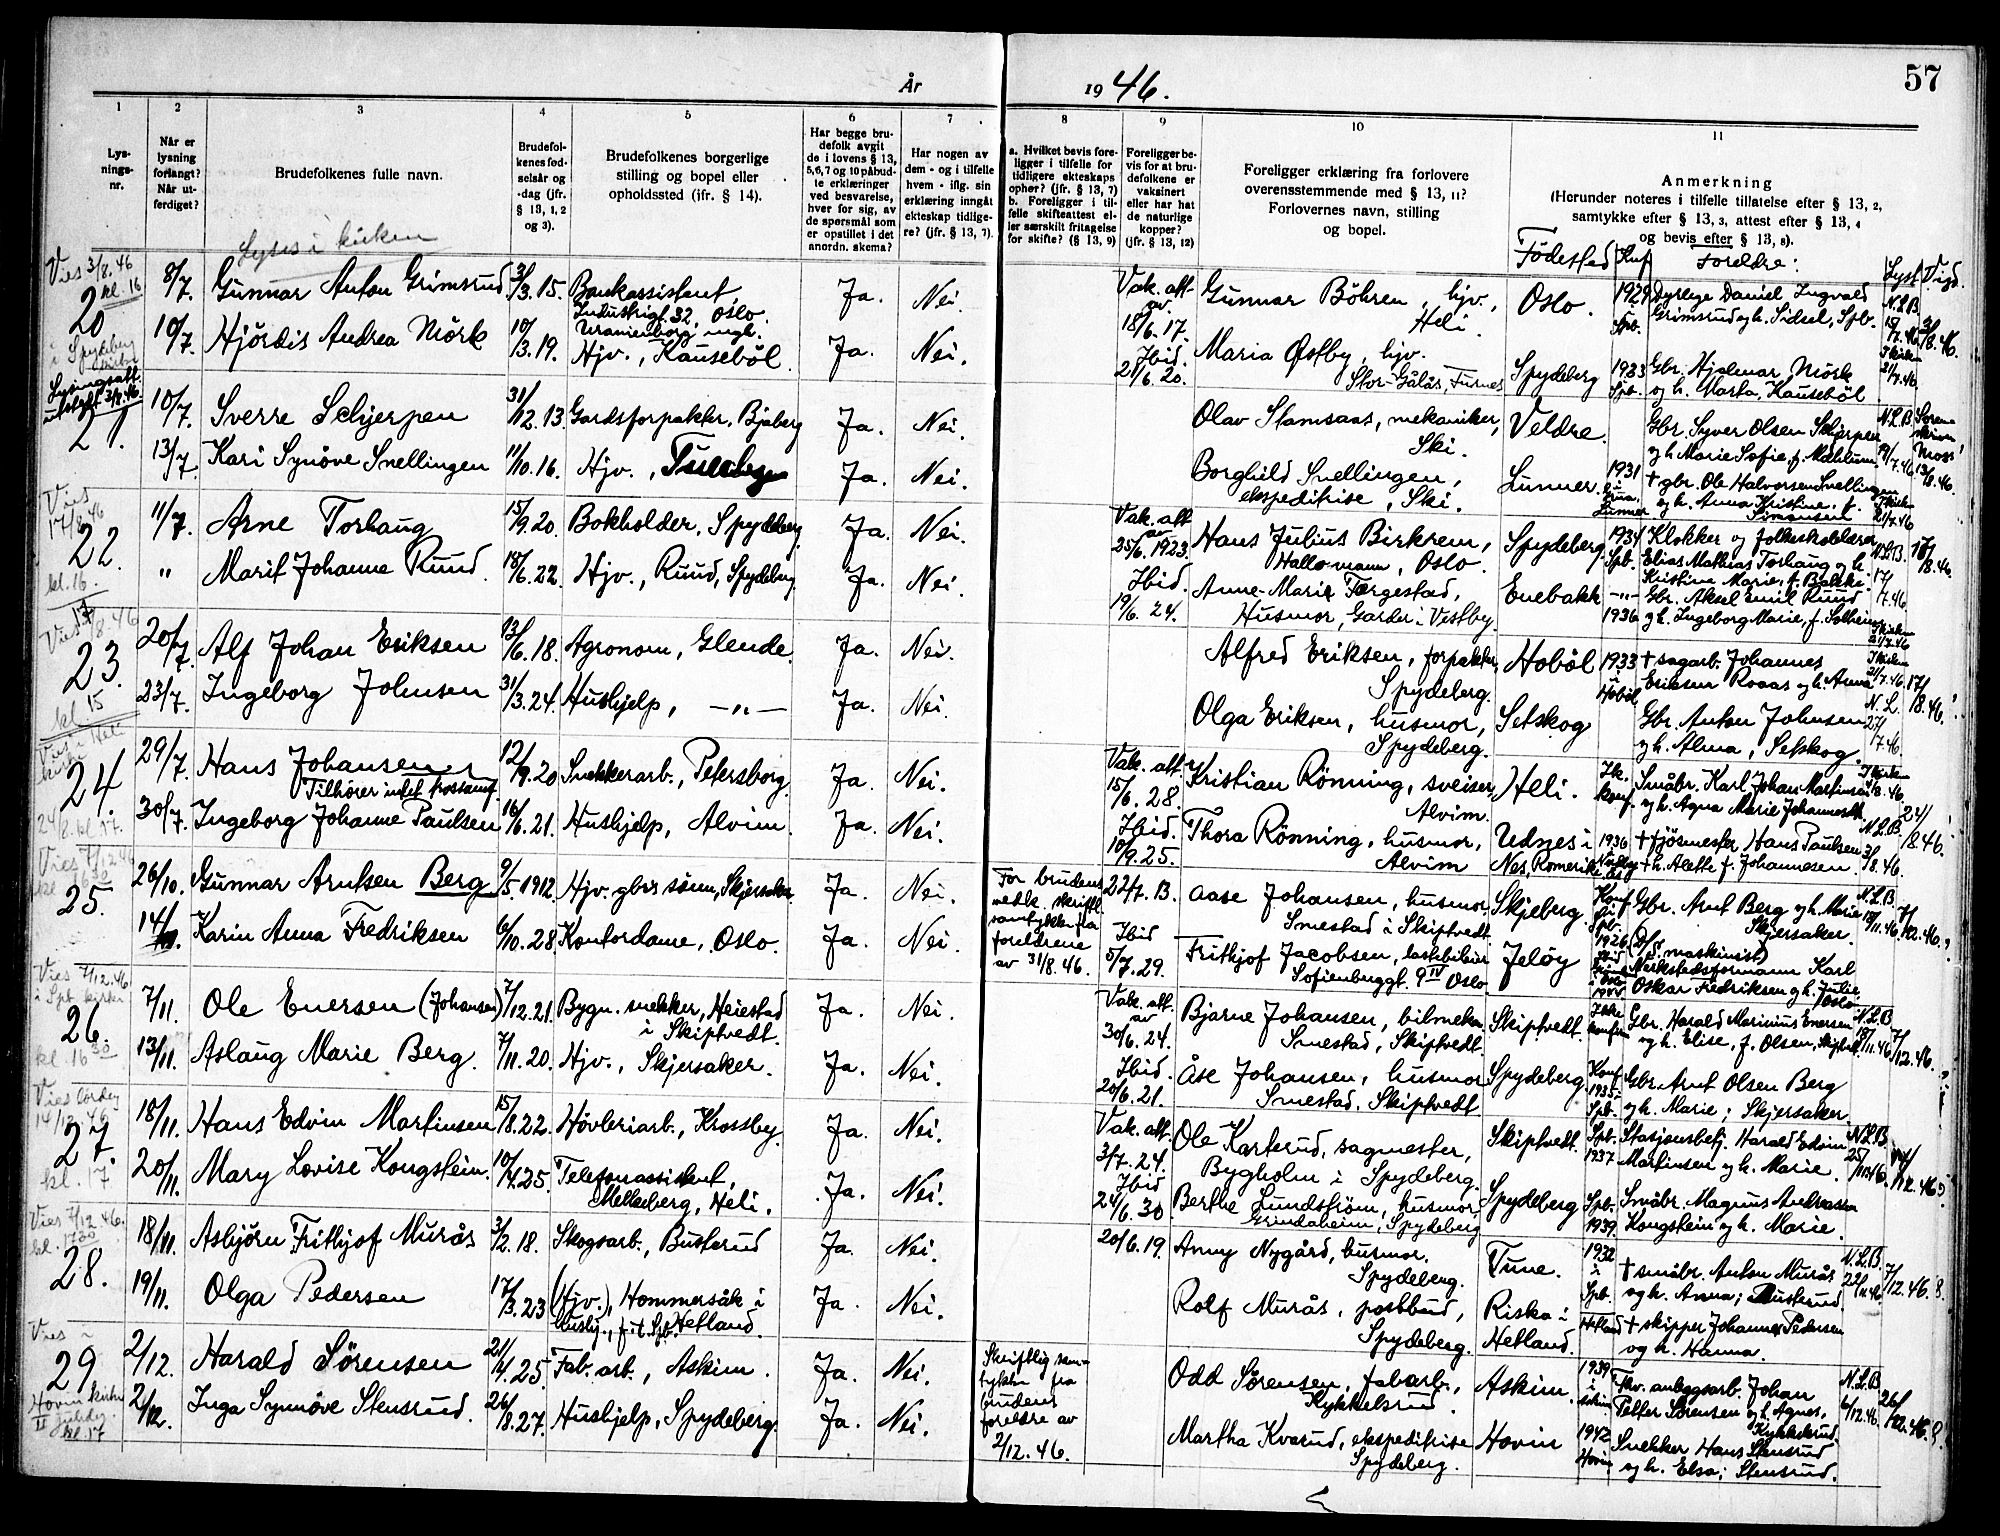 År
19 46.
57
1
2
3
4
5
6
7
8
9
10
11
Lys-
nings-
nr.
Når er
lysning
forlangt?
Når ut-
ferdiget?
Brudefolkenes fulle navn.
Brudefol-
kenes fød-
selsår og
-dag (jfr.
§ 13, 1, 2
og 3).
Brudefolkenes borgerlige
stilling og bopel eller
opholdssted (jfr. § 14).
Har begge bru-
defolk avgit
de i lovens § 13,
5,6,7 og 10 påbud-
te erklæringer
ved besvarelse,
hver for sig, av
de spørsmål som
er opstillet i det
anordn. skema?
Har nogen av
dem - og i tilfelle
hvem - iflg. sin
erklæring inngått
ekteskap tidlige-
re? (jfr. § 13, 7).
a. Hvilket bevis fore-
ligger i tilfelle for
tidligere ekteskaps
ophør? (jfr. § 13, 7)
b. Foreligger i til-
felle skifteattest el-
ler særskilt fritagelse
for skifte? (§ 13, 9)
Foreligger be-
vis for at bru-
defolkene er
vaksinert
eller har hat
de naturlige
kopper?
(jfr. § 13, 12)
Foreligger erklæring fra forlovere
overensstemmende med § 13, 11?
Forlovernes navn, stilling
og bopel.
Anmerkning
(Herunder noteres i tilfelle tillatelse efter § 13, 2,
samtykke efter § 13, 3, attest efter § 13, 4
og bevis efter § 13, 8).
Lyses i kirken
Fødested
Knf
Foreldre:
Lyst
Vigd.
Vies 3/8.46
kl. 16
20
i Spydeberg kirke
8/7. Gunnar Anton Grimsrud 3/3.15. Bankassistent, Ja. Nei.
Industrigt. 32, Oslo.
Uranienborg mgh.
Vak. att. av 18/6.17. Gunnar Böhren, hjv., Heli. Oslo. 1929 Spb.
Dyrlege Daniel Ingvald
Grimsrud og h. Sidsel, Spb.
N.L.B. 3/8.46.
10/7. Hjördis Andrea Mörk 10/3.19. Hjv., Kauseböl. Ja. Nei.
Ibid. 21/6.20. Maria Østby, hjv. Spydeberg 1933 Spb.
Gbr. Hjalmar Mörk
og h. Marta, Kauseböl
I kirken 21/7.46.
Lysingsatt. utstedt
21.
10/7. Sverre Schjerpen 31/12.13. Gardsforpakter, Bjaberg Ja. Nei.
Olav Stamsaas, mekaniker, Ski. Veldre.
Gbr. Syver Olsen Skjerpen
og h. Marie Sofie f. Mæhlum
N.L.B. 19/7.46
Sorenskriver Moss 13/8.46.
13/7. Kari Synöve Snellingen 11/10.16. Hjv., Ja. Nei.
Borghild Snellingen, ekspeditrise, Ski. Lunner. 1931 i Lunner
† gbr. Ole Halvorsen Snellingen
og h. Anna Kristine, f. Simensen
I kirken 21/7.46
Vies 17/8.46
22.
kl. 16.
11/7. Arne Torhaug 15/9.20. Bokholder, Spydeberg Ja. Nei.
Vak. att. av 25/6.1923. Hans Julius Birkrem, Hallomann, Oslo. Spydeberg. 1934 Spb.
Klokker og folkeskolelærer
Elias Mathias Torhaug og h.
Kristine Marie, f. Bakke
N.L.B. 17/7.46. 17/8.46.
" Marit Johanne Ruud. 18/6.22. Hjv., Ruud, Spydeberg. Ja. Nei.
Ibid. 19/6.24. Anne-Marie Fergestad, Husmor, Garder i Vestby. Enebakk -"- 1936
Gbr. Aksel Emil Ruud
og h. Ingeborg Marie, f. Solheim
I kirken 21/7.46
Vies 17/8.46
23.
kl. 15
20/7. Alf Johan Eriksen 13/6.18. Agronom, Glende. Ja. Nei.
Alfred Eriksen, forpakter, Spydeberg. Hobøl 1933 i Hobøl
† sagarb. Johannes
Eriksen Roaas og h. Anna
I kirken 21/7.46. 17/8.46.
23/7. Ingeborg Johnsen 31/3.24. Hushjelp, -"- Ja. Nei.
Olga Eriksen, husmor, Spydeberg. Setskog
Gbr. Anton Johnsen
og h. Alma, Setskog.
N.L. 27/7.46.
Vies i Heli kirke
24.
24/8. kl. 17.
29/7. Hans Johansen 12/9.20 Snekkerarb., Petersborg. Ja. Nei.
Tilhører intet trossamf.
Vak. att. 15/6.28. Kristian Rönning, sveiser, Alvim. Heli. Ik. konf.
Småbr. Karl Johan Martinsen
og h. Agna Marie Johannesdt.
24/8.46.
30/7. Ingeborg Johanne Paulsen 16/6.21. Hushjelp, Alvim. Ja. Nei.
Ibid. 10/9.25. Thora Rönning, husmor, Alvim Udnes i Nes, Romerike 1936
† fjösmester Hans Paulsen
† h. Alette f. Johannesen.
N.L.B. 3/8.46.
Vies 7/12.46
25.
26/10. Gunnar Arntsen Berg 9/5.1912. Hjv. gbrs sönn, Skjersaker Ja. Nei.
For brudens vedk. skriftl. samtykke fra foreldrene av 31/8.46.
22/7. B. Aase Johansen, husmor, Smestad i Skiptvedt. Skjeberg Konf. i Spb. 1926
Gbr. Arnt Berg og h. Marie
Skjersaker.
N.L.B. 18/11.46. 7/12.46.
14/11. Karin Anna Fredriksen 6/10.28. Kontordame, Oslo. Ja. Nei.
Ibid 5/7.29. Frithjof Jacobsen, lastebileier Sofienberggt. 9 IV Oslo Jeløy
(D/S maskinist)
Verkstedsformann Karl
Oskar Fredriksen og h. Julie, Oslo
Vies 7/12.46
i Spb. kirke
26.
kl. 16 30
7/11. Ole Enersen (Johansen) 7/12.21. Bygn. snekker, Heiestad i Skiptvedt. Ja. Nei.
Vak. att. av 30/6.24. Bjarne Johansen, bilmek. Smestad, Skiptvedt. Skiptvedt. Ikke konf.
Gbr. Harald Marinius Enersen
og h. Elise, f. Olsen, Skiptvedt
N.L.B. 18/11.46. 7/12.46.
13/11. Aslaug Marie Berg. 7/11.20. Hjv., Skjersaker. Ja. Nei.
Ibid. 20/6.21. Åse Johansen, husmor Smestad, Skiptvedt Spydeberg. Konf. 1935 Spb.
Gbr. Arnt Olsen Berg
og h. Marie; Skjersaker.
Vies lördag
14/12.46
27.
kl. 17
18/11. Hans Edvin Martinsen 15/8.22. Hövleriarb., Krossby. Ja. Nei.
Vak. att. 3/7.24. Ole Karterud, sagmester, Bygholm i Spydeberg. Skiptvedt. Spb. 1937
Stasjonsbetj. Harald Edvin
Martinsen og h. Marie.
N.L.B. 25/11.46. 14/12.46.
20/11. Mary Lovise Kongstein. 10/4.25. Telefonassistent, Mellesberg, Heli. Ja. Nei.
Ibid 24/6.30. Berthe Lundström, husmor, Grindaheim, Spydeberg Spydeberg Spb. 1939.
Småbr. Magnus Andreassen
Kongstein og h. Marie.
Vies 7/12.46.
kl. 17 30
28.
18/11. Asbjörn Frithjof Murås 3/2.18. Skogsarb., Busterud Ja. Nei.
20/6.19. Anny Nygård, husmor. Spydeberg. Tune. 1932 i Spb.
† småbr. Anton Murås
og h. Anna; Busterud.
N.L.B. 22/11.46. 7/12.46.
19/11. Olga Pedersen 17/3.23 (Hjv.), Hommersåk i Hetland. Ja. Nei.
Hushj., f.t. Spb.
Rolf Murås, postbud, Spydeberg. Riska i Hetland. Hetland
† skipper Johannes Pedersen
og h. Hanna.
Vies i
29
Hovin kirke
II juledag
kl. 17
2/12. Harald Sörensen 21/4.25. Fab. arb., Askim. Ja. Nei.
Skriftlig samtykke fra brudens foreldre av 2/12.46.
Odd Sörensen, fabarb., Kykkelsrud. Askim. 1939 i Askim
Fhv. anleggsarb. Johan
Petter Sörensen og h. Agnes,
Kykkelsrud.
N.L.B. 6/12.46. 26/12.46.
2/12. Inga Synnöve Stensrud. 26/8.27. Hushjelp, Spydeberg. Ja. Nei.
Martha Kvarud, ekspeditrise Spydeberg. Hovin 1942 Hovin
Snekker Hans Stensrud
og h. Elsa; Stensrud.